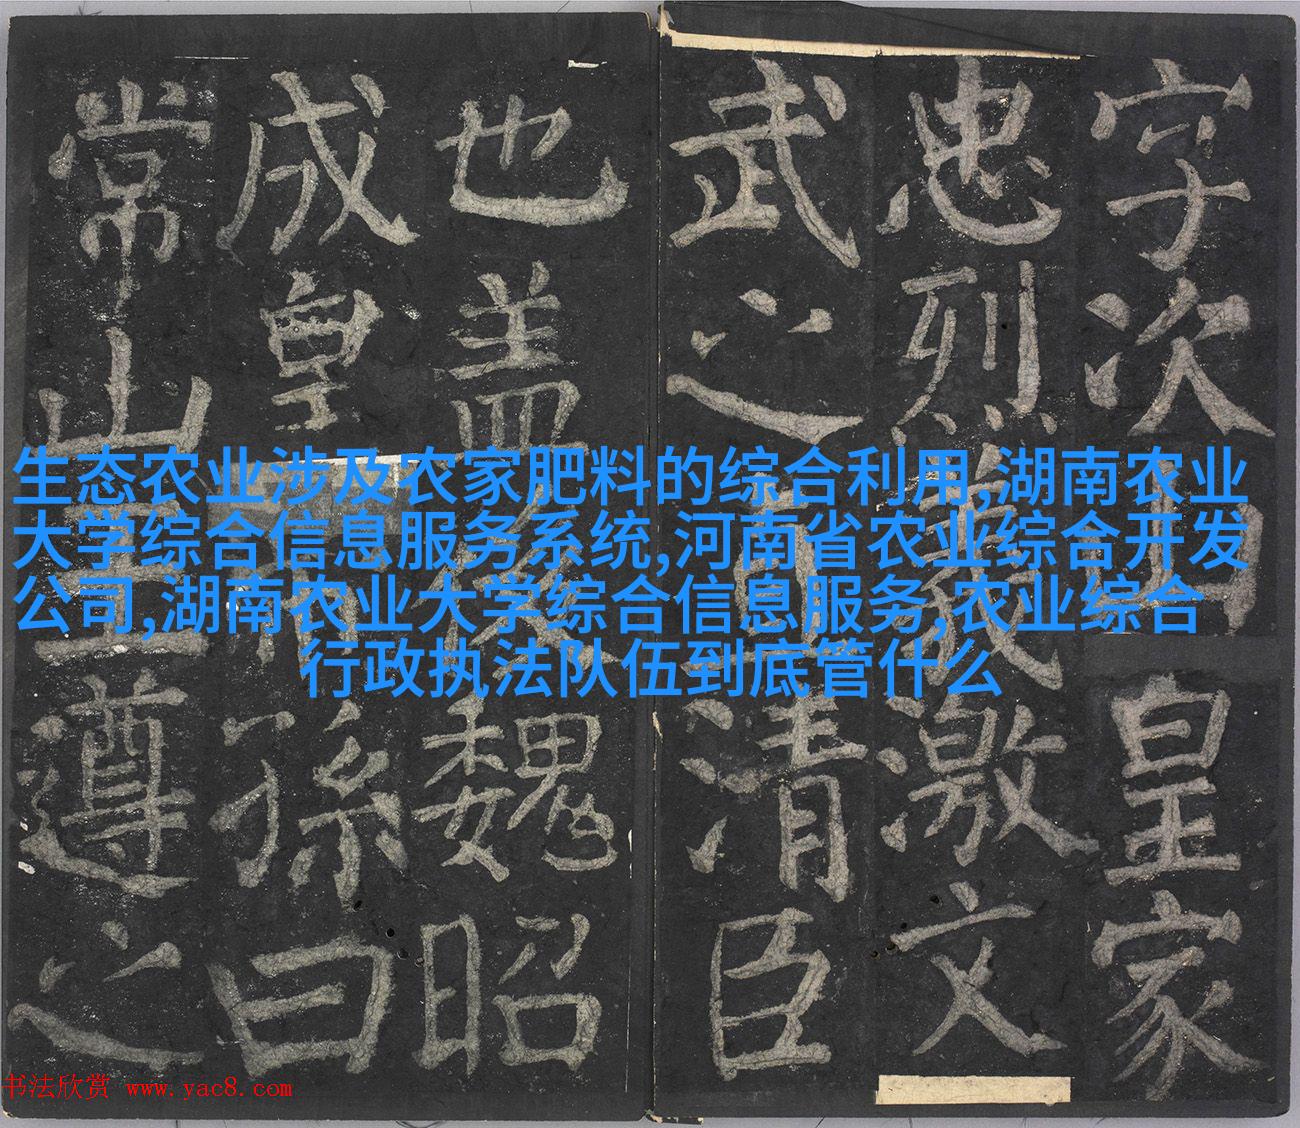 字次山皇家
忠烈義激文
武之直清臣
也盖後魏昭
成皇帝孫曰
常山王遵之
生态农业涉及农家肥料的综合利用,湖南农业
大学综合信息服务系统,河南省农业综合开发
公司,湖南农业大学综合信息服务,农业综合
行政执法队伍到底管什么
书法欣赏 www.yac8.com